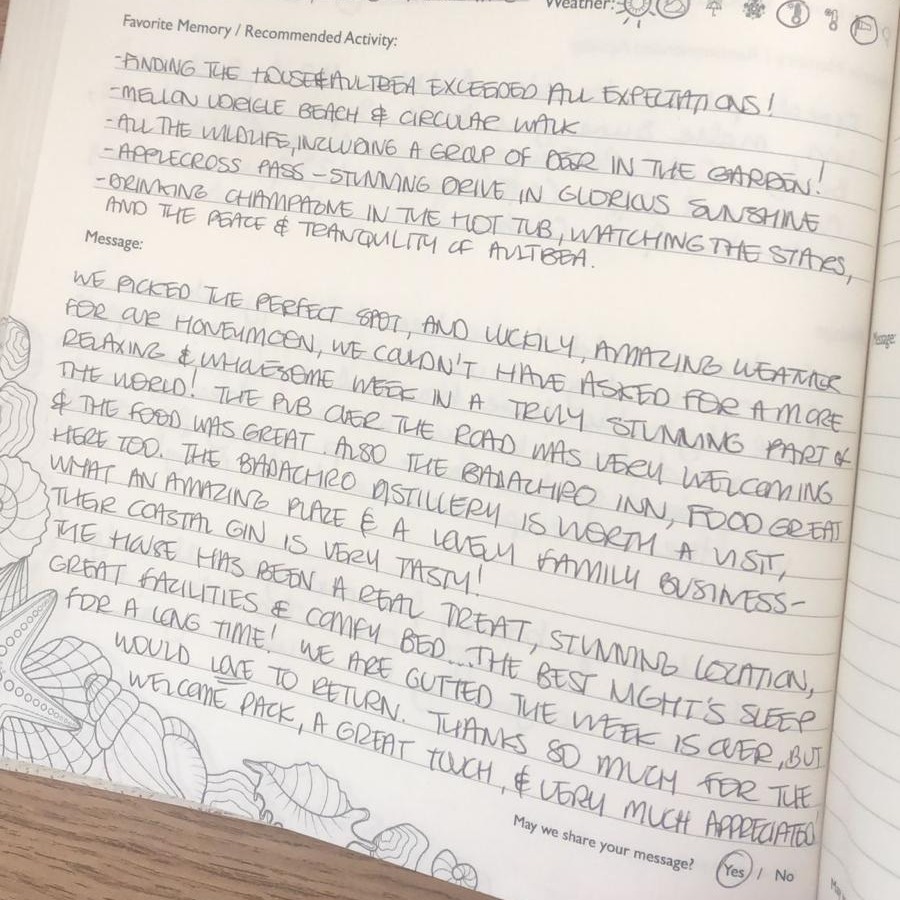 Weather:
Favorite Memory / Recommended Activity:
-FINDING THE HOUSE & AULTBEA EXCEEDED ALL EXPECTATIONS!
-MELLON UDRIGLE BEACH & CIRCULAR WALK
-ALL THE WILDLIFE, INCLUDING A GROUP OF DEER IN THE GARDEN!
-APPLECROSS PASS - STUNNING DRIVE IN GLORIOUS SUNSHINE
-DRINKING CHAMPAGNE IN THE HOT TUB, WATCHING THE STARS,
AND THE PEACE & TRANQUILITY OF AULTBEA.
Message:
WE PICKED THE PERFECT SPOT, AND LUCKILY, AMAZING WEATHER
FOR OUR HONEYMOON, WE COULDN'T HAVE ASKED FOR A MORE
RELAXING & WHOLESOME WEEK IN A TRULY STUNNING PART OF
THE WORLD! THE PUB OVER THE ROAD WAS VERY WELCOMING
& THE FOOD WAS GREAT. ALSO THE BADACHRO INN, FOOD GREAT
HERE TOO. THE BADACHRO DISTILLERY IS WORTH A VISIT,
WHAT AN AMAZING PLACE & A LOVELY FAMILY BUSINESS-
THEIR COASTAL GIN IS VERY TASTY!
THE HOUSE HAS BEEN A REAL TREAT, STUNNING LOCATION,
GREAT FACILITIES & COMFY BED....THE BEST NIGHT'S SLEEP
FOR A LONG TIME! WE ARE GUTTED THE WEEK IS OVER, BUT
WOULD LOVE TO RETURN. THANKS SO MUCH FOR THE
WELCOME PACK, A GREAT TOUCH, & VERY MUCH APPRECIATED!
May we share your message? Yes / No
Message: